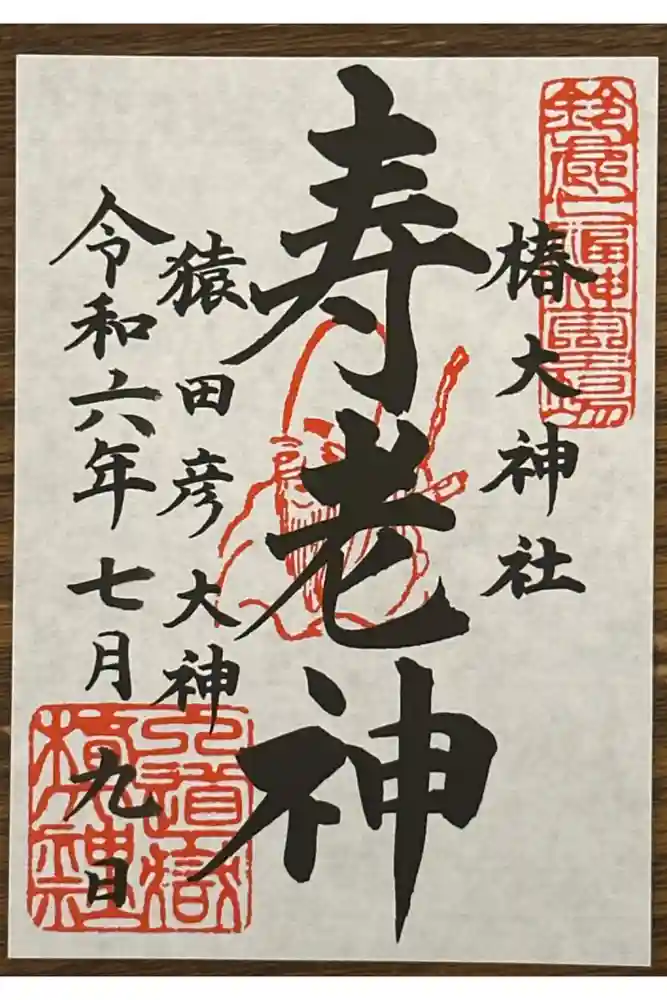 鈴鹿七福神霊場
椿大神社
寿老神
猿田彦大神
令和六年七月九日